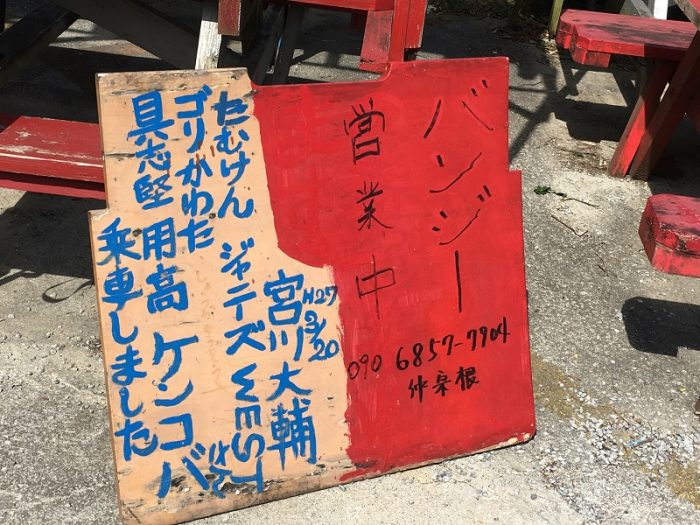 バンジー
営業中
090 6857-7904
仲宗根
H27 3/20
宮川大輔
たむけん ジャニーズWEST
ゴリ かわた
具志堅用高 ケンコバ
乗車しました